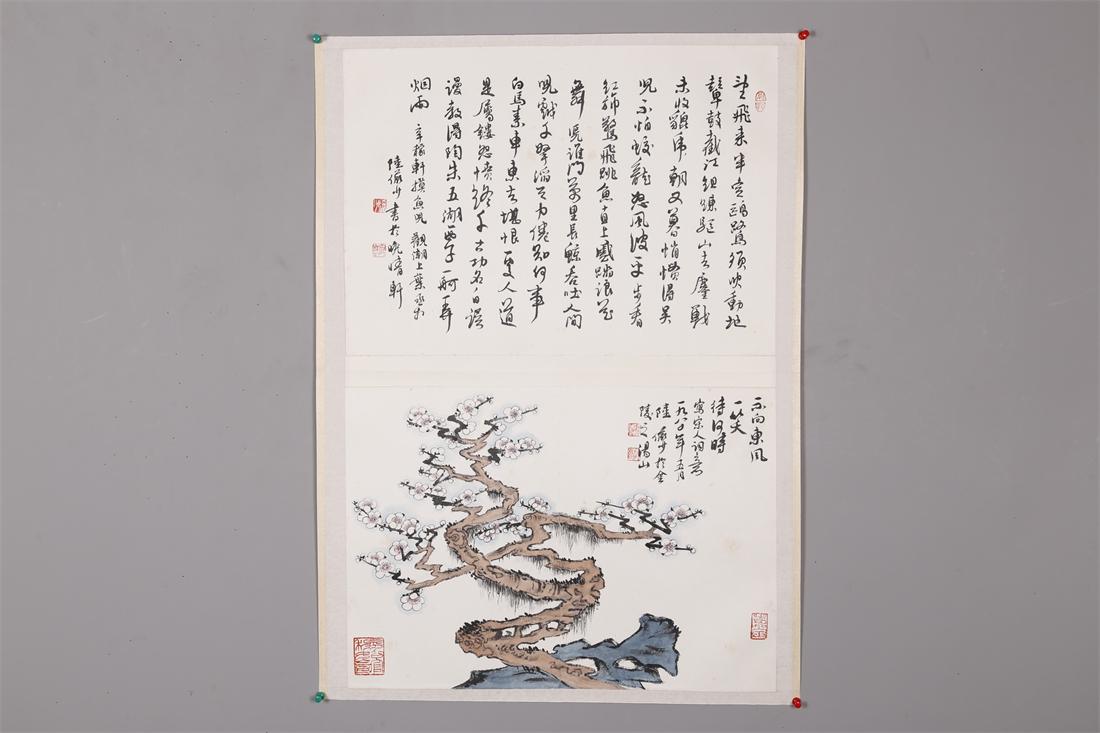 望飛来半空鷗鷺須臾動地
鼙鼓截江組練驅山去鏖戰
未收貔虎朝又暮悄慣得吳
兒不怕蛟龍怒風波平步看
紅旆驚飛跳魚直上蹙踏浪花
舞凭誰問萬里長鯨吞吐人間
兒戲千弩滔天力倦知何事
白馬素車東去堪恨處人道
是屬鏤怨憤終千古功名自誤
謾教得陶朱五湖西子一舸弄
烟雨 辛稼軒摸魚兒觀潮上葉丞相
陸儼少書於晚晴軒
不向東風
一笑
待何時
寫宋人詞意
一九八〇年五月
陸儼少於金
陵之湯山